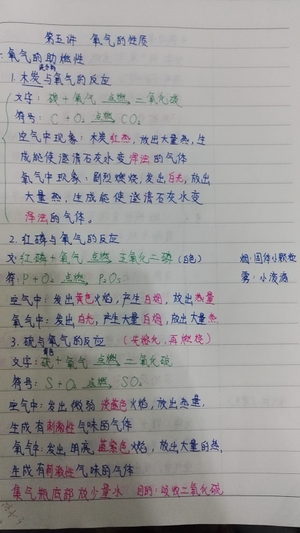 第五讲 氧气的性质
一 氧气的助燃性
1. 木炭与氧气的反应
文字: 碳 + 氧气 点燃 二氧化碳
符号: C + O₂ 点燃 CO₂
空气中现象: 木炭红热, 放出大量热, 生
成能使澄清石灰水变浑浊的气体
氧气中现象: 剧烈燃烧, 发出白光, 放出
大量热, 生成能使澄清石灰水变
浑浊的气体。
2. 红磷与氧气的反应
文: 红磷 + 氧气 点燃 五氧化二磷 (白色) 烟: 固体小颗粒
符: P + O₂ 点燃 P₂O₅ 雾: 小液滴
空气中: 发出黄色火焰, 产生白烟, 放出热量
氧气中: 发出白光, 产生大量白烟, 放出大量热
3. 硫与氧气的反应 (先熔化, 再燃烧)
黄色
文字: 硫 + 氧气 点燃 二氧化硫
符号: S + O₂ 点燃 SO₂
空气中: 发出微弱淡蓝色火焰, 放出热量.
生成有刺激性气味的气体
氧气中: 发出明亮蓝紫色火焰, 放出大量的热,
生成有刺激性气味的气体
集气瓶底部放少量水 目的: 吸收二氧化硫